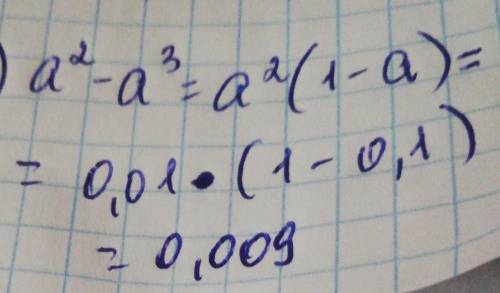 ) a² - a³ = a²(1 - a) =
= 0,01 • (1 - 0,1)
= 0,009